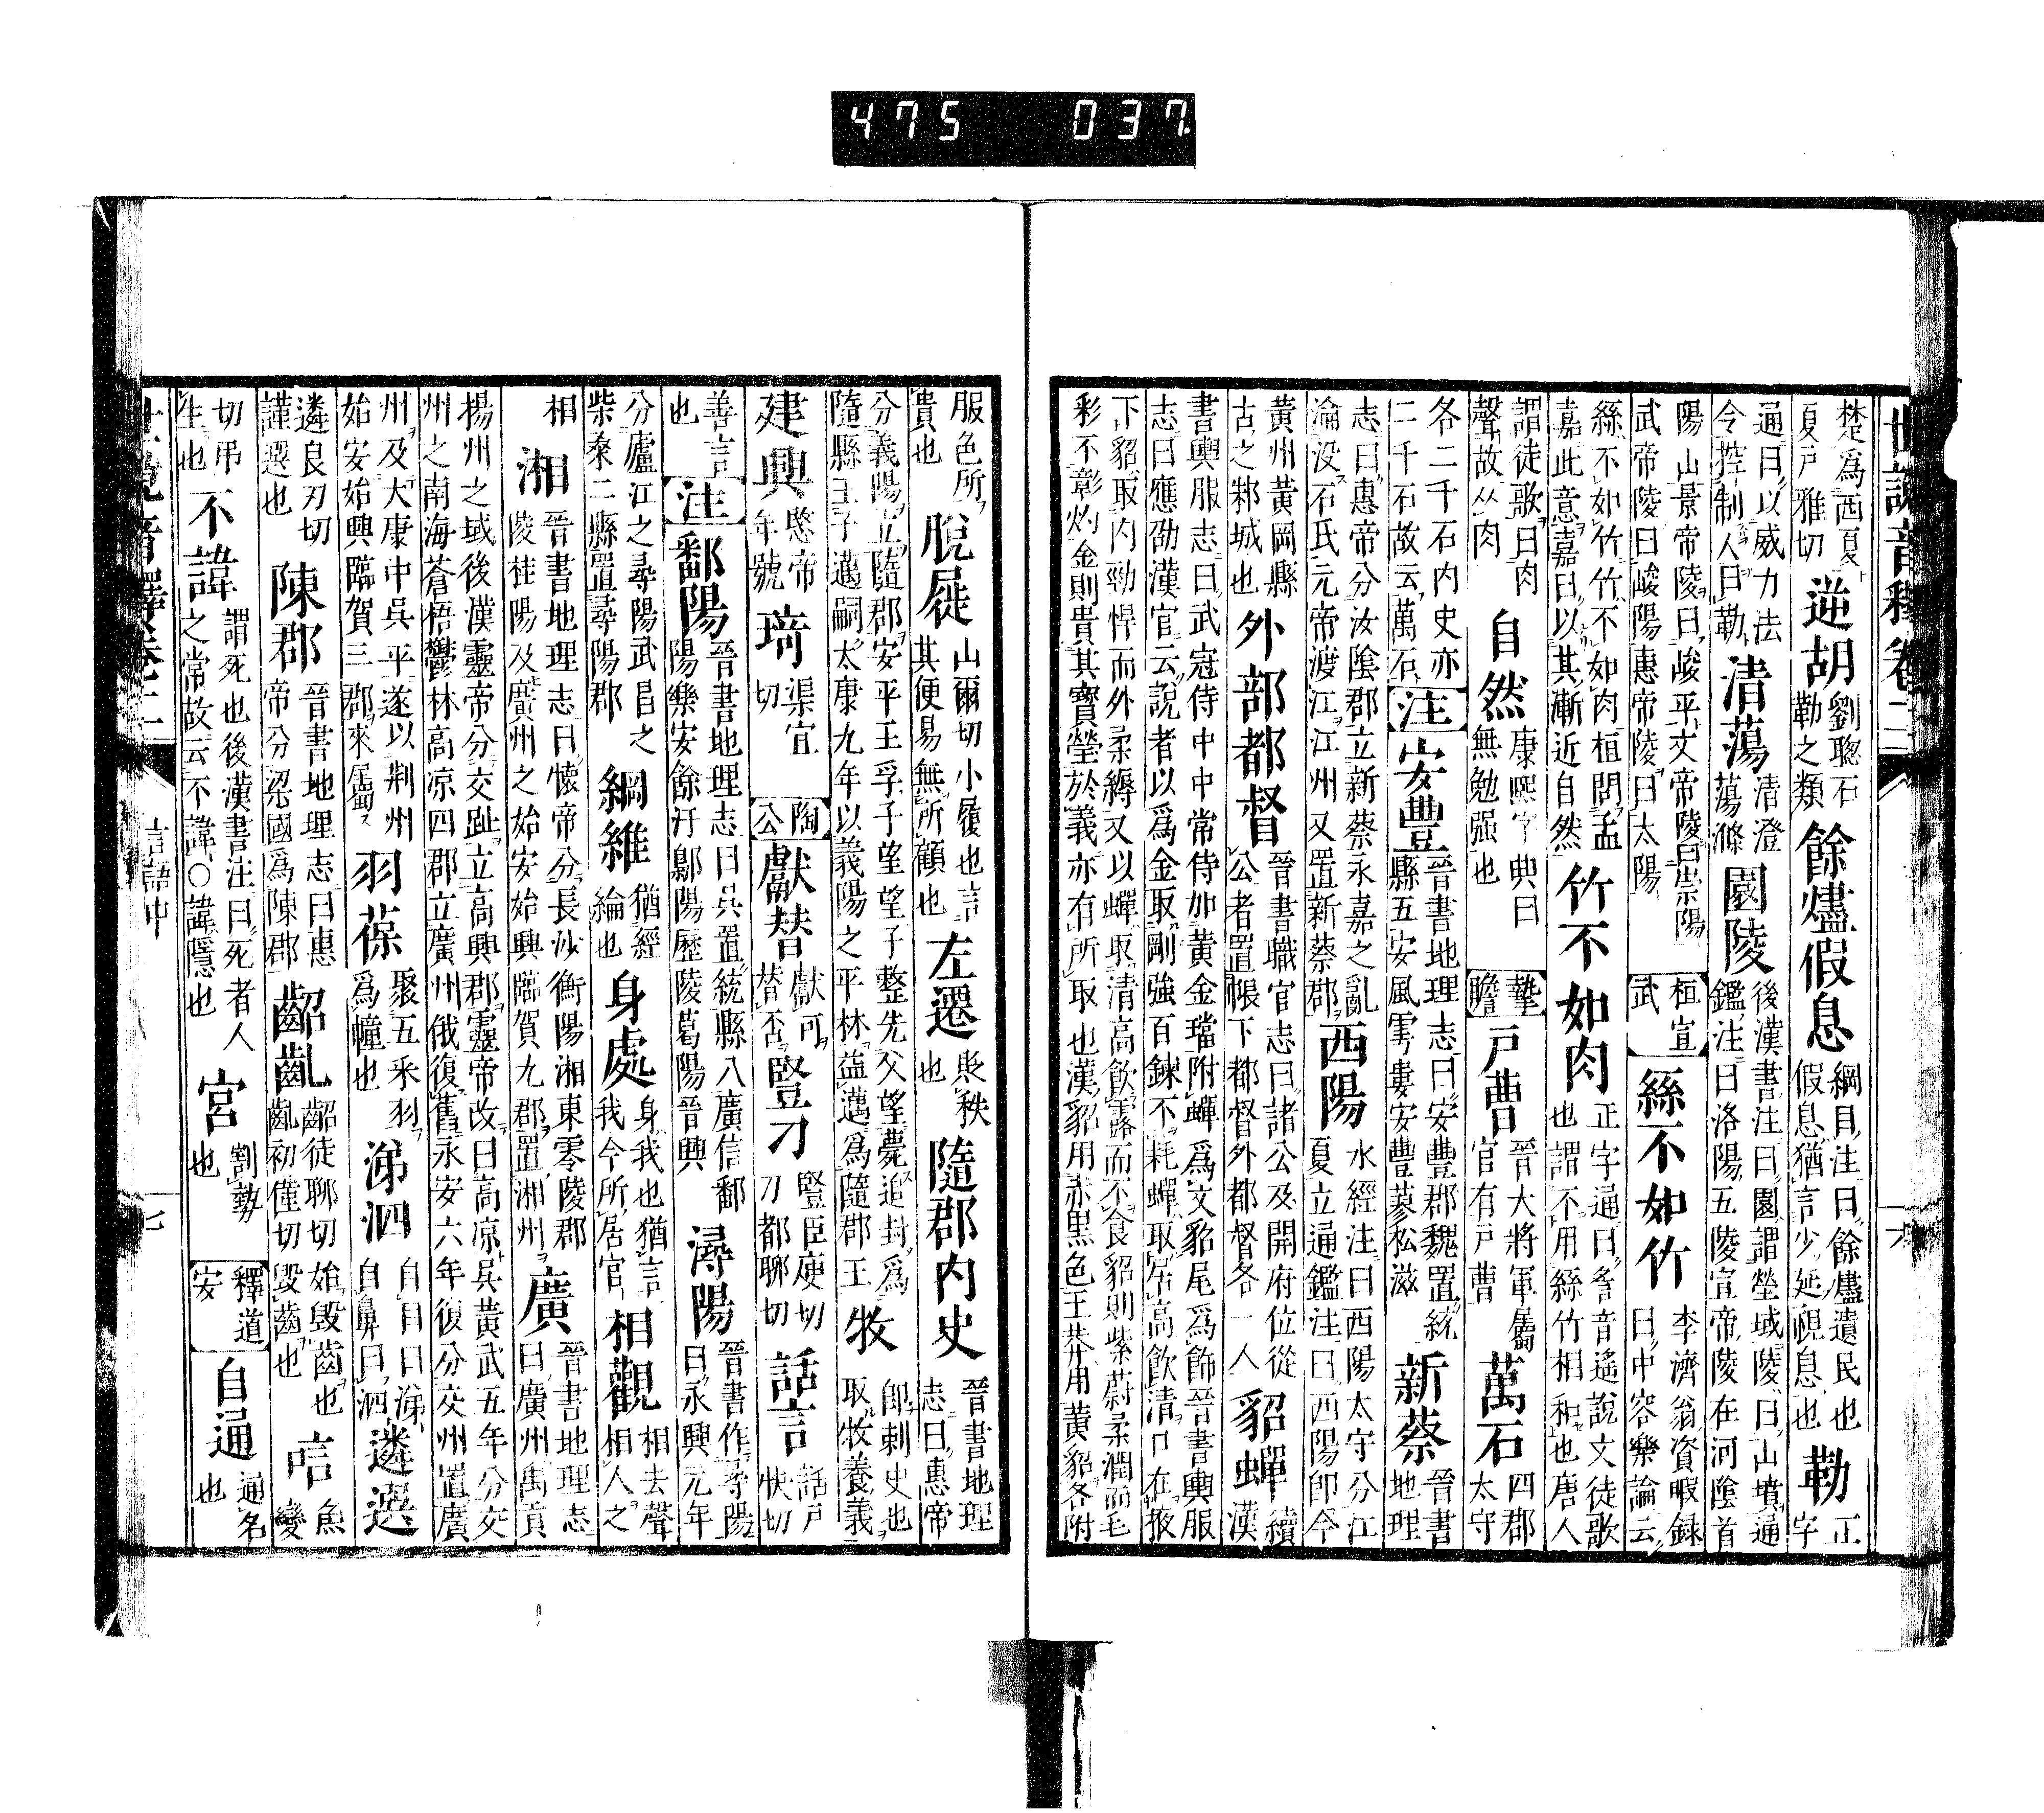 475 037.
世說音釋卷二 六
楚爲西夏
夏戸雅切 逆胡 劉聰石
勒之類 餘燼假息 綱目注曰餘燼遺民也
假息猶言少延視息也 勒 正
字
通曰以威力法
令控制人曰勒 清蕩 清澄
蕩滌 園陵 後漢書注曰園謂塋域陵曰山墳通
鑑注曰洛陽五陵宣帝陵在河陰首
陽山景帝陵曰峻平文帝陵曰崇陽
武帝陵曰峻陽惠帝陵曰太陽 桓宣
武 絲不如竹 李濟翁資暇録
曰中容樂論云
絲不如竹竹不如肉桓問孟
嘉此意嘉曰以其漸近自然 竹不如肉 正字通曰肴音遙說文徒歌
也謂不用絲竹相和也唐人
謂徒歌曰肉
聲故从肉 自然 康熙字典曰
無勉强也 摯
瞻 戸曹 晉大將軍屬
官有戸曹 萬石 四郡
太守
各二千石内史亦
二千石故云萬石 注 安豐 晉書地理志曰安豐郡魏置統
縣五安風雩婁安豐蓼松滋 新蔡 晉書
地理
志曰惠帝分汝陰郡立新蔡永嘉之亂
淪没石氏元帝渡江江州又置新蔡郡 西陽 水經注曰西陽太守分江
夏立通鑑注曰西陽即今
黃州黃岡縣
古之邾城也 外部都督 晉書職官志曰諸公及開府位從
公者置帳下都督外都督各一人 貂蟬 續
漢
書輿服志曰武冠侍中中常侍加黃金璫附蟬爲文貂尾爲飾晉書輿服
志曰應劭漢官云說者以爲金取剛強百鍊不耗蟬取居高飲清口在掖
下貂取内勁悍而外柔縟又以蟬取清高飲露而不食貂則紫蔚柔潤而毛
彩不彰灼金則貴其寳瑩於義亦有所取也漢貂用赤黒色王莽用黄貂各附
服色所
貴也 脫屣 山爾切小履也言
其便易無所顧也 左遷 貶秩
也 隨郡内史 晉書地理
志曰惠帝
分義陽立隨郡安平王孚子望望子整先父望薨追封爲
隨縣王子邁嗣太康九年以義陽之平林益邁爲隨郡王 牧 即刺史也
取牧養義
建興 愍帝
年號 琦 渠宜
切 陶
公 獻替 獻可
替否 豎刁 豎臣庾切
刀都聊切 話言 話戸
快切
善言
也 注 鄱陽 晉書地理志曰吳置統縣八廣信鄱
陽樂安餘汗鄡陽歷陵葛陽晉興 潯陽 晉書作尋陽
曰永興元年
分廬江之尋陽武昌之
柴桑二縣置尋陽郡 綱維 猶經
綸也 身處 身我也猶言
我今所居官 相觀 相去聲
相人之
相 湘 晉書地理志曰懷帝分長沙衡陽湘東零陵郡
陵桂陽及廣州之始安始興臨賀九郡置湘州 廣 晉書地理志
曰廣州禹貢
揚州之域後漢靈帝分交趾立高興郡靈帝改曰高凉吳黄武五年分交
州之南海蒼梧鬱林高凉四郡立廣州俄復舊永安六年復分交州置廣
州及大康中吳平遂以荆州
始安始興臨賀三郡來屬 羽葆 聚五采羽
爲幢也 涕泗 自目曰涕
自鼻曰泗 遴選
遴良刃切
謹選也 陳郡 晉書地理志曰惠
帝分梁國爲陳郡 齠齔 齠徒聊切始毁齒也
齔初僅切毁齒也 唁 魚
變
切弔
生也 不諱 謂死也後漢書注曰死者人
之常故云不諱○諱隱也 宮 割勢
也 釋道
安 自通 通名
也
世說音釋卷二 言語中 七